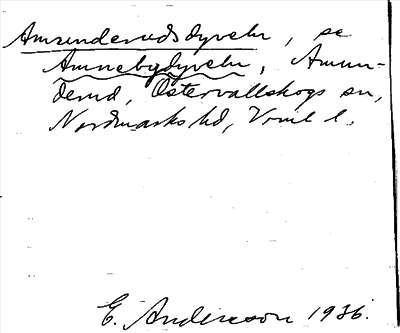 Amunderudsdyvelr, se
Amnebydyvelr, Amun-
derud, Östervallskogs sn,
Nordmarks hd, Vrml l.
E. Andersson 1936.